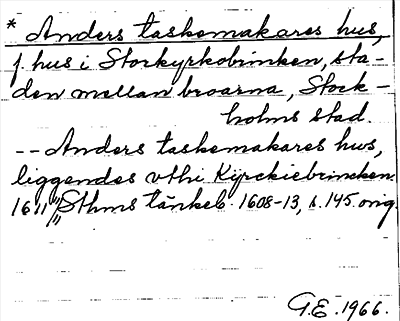 * Anders taskemakares hus,
f. hus i Storkyrkobrinken, sta-
den mellan broarna, Stock-
holms stad.
-- Anders taskemakares hus,
liggendes vthi Kyrckiebrincken.
1611 // Sthms tänkeb. 1608-13, s. 145 orig.
G.E. 1966.